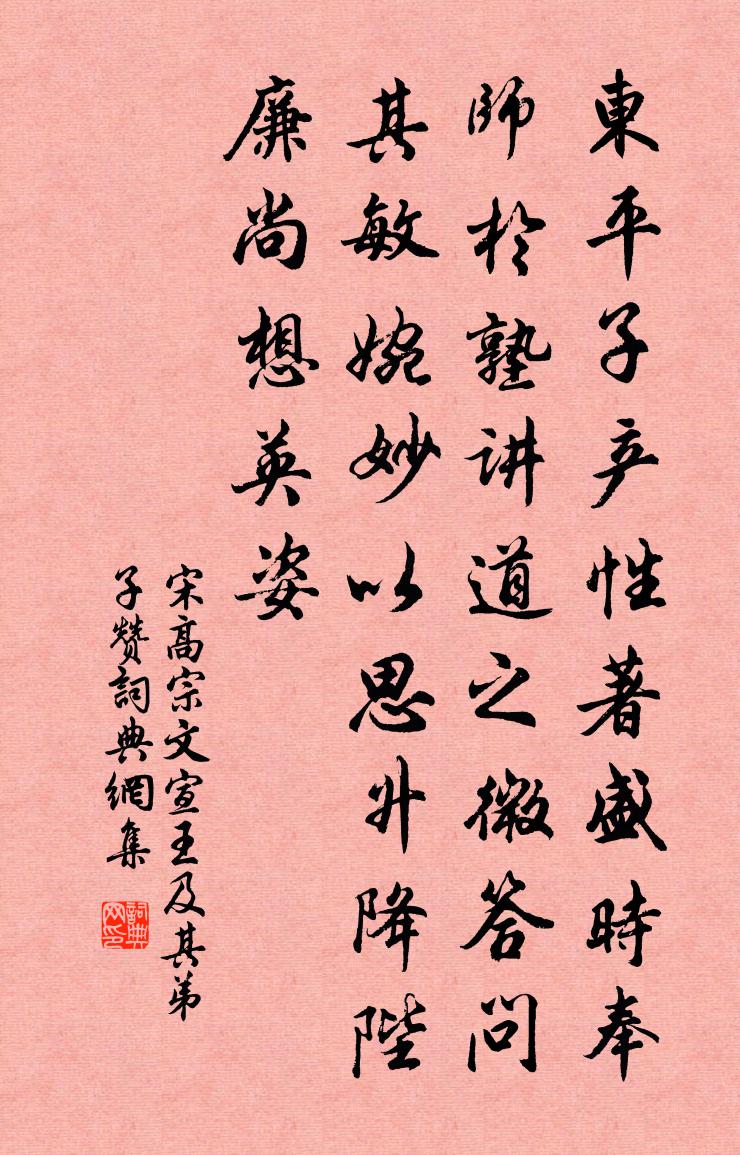 東平子产性著盛時奉
師於塾讲道之微答問
其敏婉妙以思升降陛
廉尚想英姿
宋高宗文宣王及其弟
子赞詞典網集
詞典网印